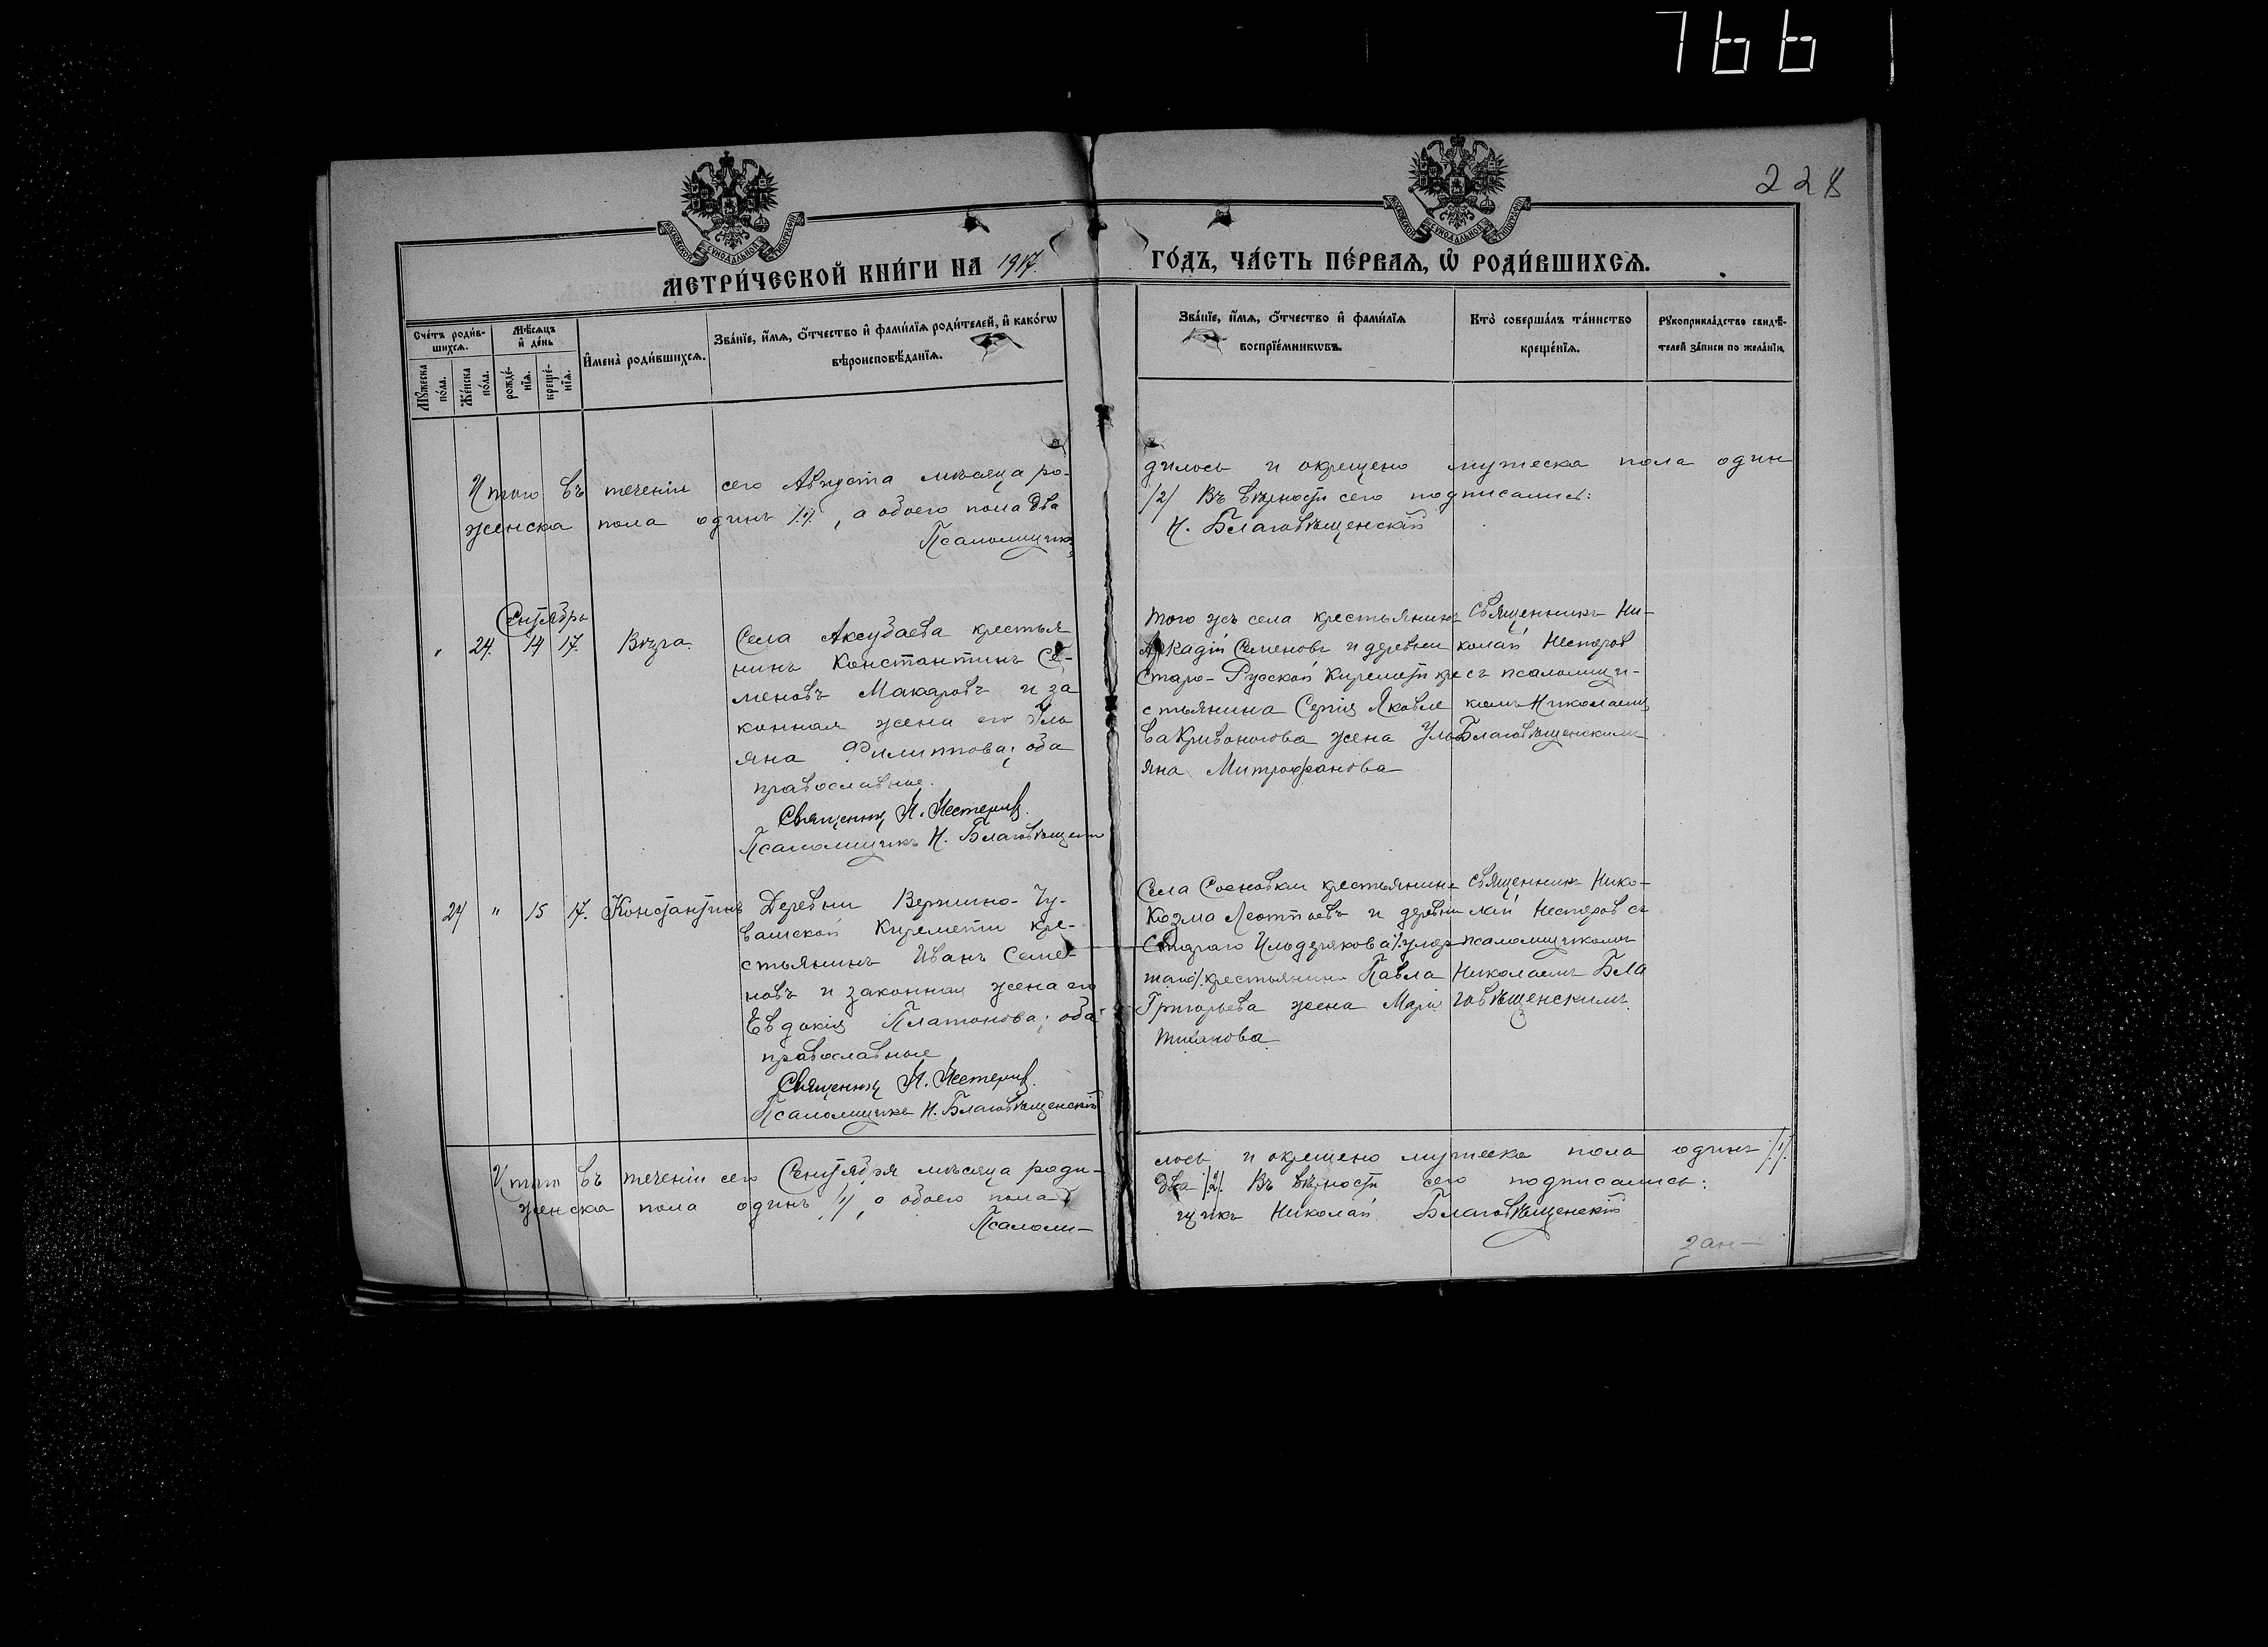 766
228
МОСКОВСКОЙ СУНОДАЛЬНОЙ ТИПОГРАФІИ
МОСКОВСКОЙ СУНОДАЛЬНОЙ ТИПОГРАФІИ
МЕТРИ́ЧЕСКОЙ КНИ́ГИ НА 1917
ГО́ДЪ, ЧА́СТЬ ПЕ́РВАЯ, Ѡ РОДИ́ВШИХСЯ.
Сче́тъ роди́в-
шихся.
Мѣ́сяцъ
и де́нь
Му́жеска
по́ла.
Же́нска
по́ла.
рожде́-
нїя.
креще́-
нїя.
Имена̀ роди́вшихся.
Зва́нїе, и́мя, о́тчество и фами́лїя роди́телей, и како́гѡ
вѣроисповѣ́данїя.
Зва́нїе, и́мя, о́тчество и фами́лїя
воспрїе́мникѡвъ.
Кто̀ соверша́лъ та́инство
креще́нїя.
Рукоприкла́дство свидѣ́-
телей за́писи по жела́нїю.
Итого въ теченіи сего Августа мѣсяца ро-
женска пола одинъ /1/, а обоего пола два
Псаломщикъ
дилось и окрещено мужеска пола один
/2/ Въ вѣрности сего подписались:
Н. Благовѣщенскій
Сентябрь
" 24. 14 17. Вѣра.
Села Аксубаева крестья
нинъ Константинъ Се-
меновъ Макаровъ и за
конная жена его Улья
яна Филиппова; оба
православные.
Священникъ Н. Нестеровъ.
Псаломщикъ Н. Благовѣщенск
того жъ села крестьянинъ
Аркадій Семеновъ и деревни
Старо-Русской Киремети кре
стьянина Сергія Яковле
ва Кривоногова жена Уль
яна Митрофанова
Священникъ Ни-
колай Нестеров
съ псаломщи-
комъ Николаемъ
Благовѣщенскимъ
24 " 15 17. Константинъ
Деревни Вершино-Чу-
вашской Киремети кре-
стьянинъ Иванъ Семе-
новъ и законная жена его
Евдокія Платонова; оба
православные
Священникъ Н. Нестеровъ.
Псаломщикъ Н. Благовѣщенскій
Села Сосновки крестьянинъ
Козма Леонтьевъ и деревни
Стараго Ильдерякова
крестьянина Павла
Григорьева жена Марія
Священникъ Нико-
лай Нестеров съ
псаломщикомъ
Николаемъ Бла
говѣщенскимъ
Итого въ теченіи сего Сентября мѣсяца роди-
женска пола одинъ /1/, а обоего пола
Псалом-
лось и окрещено мужеска пола одинъ /1/.
два /2/. Въ вѣрности сего подписались:
щикъ Николай Благовѣщенскій